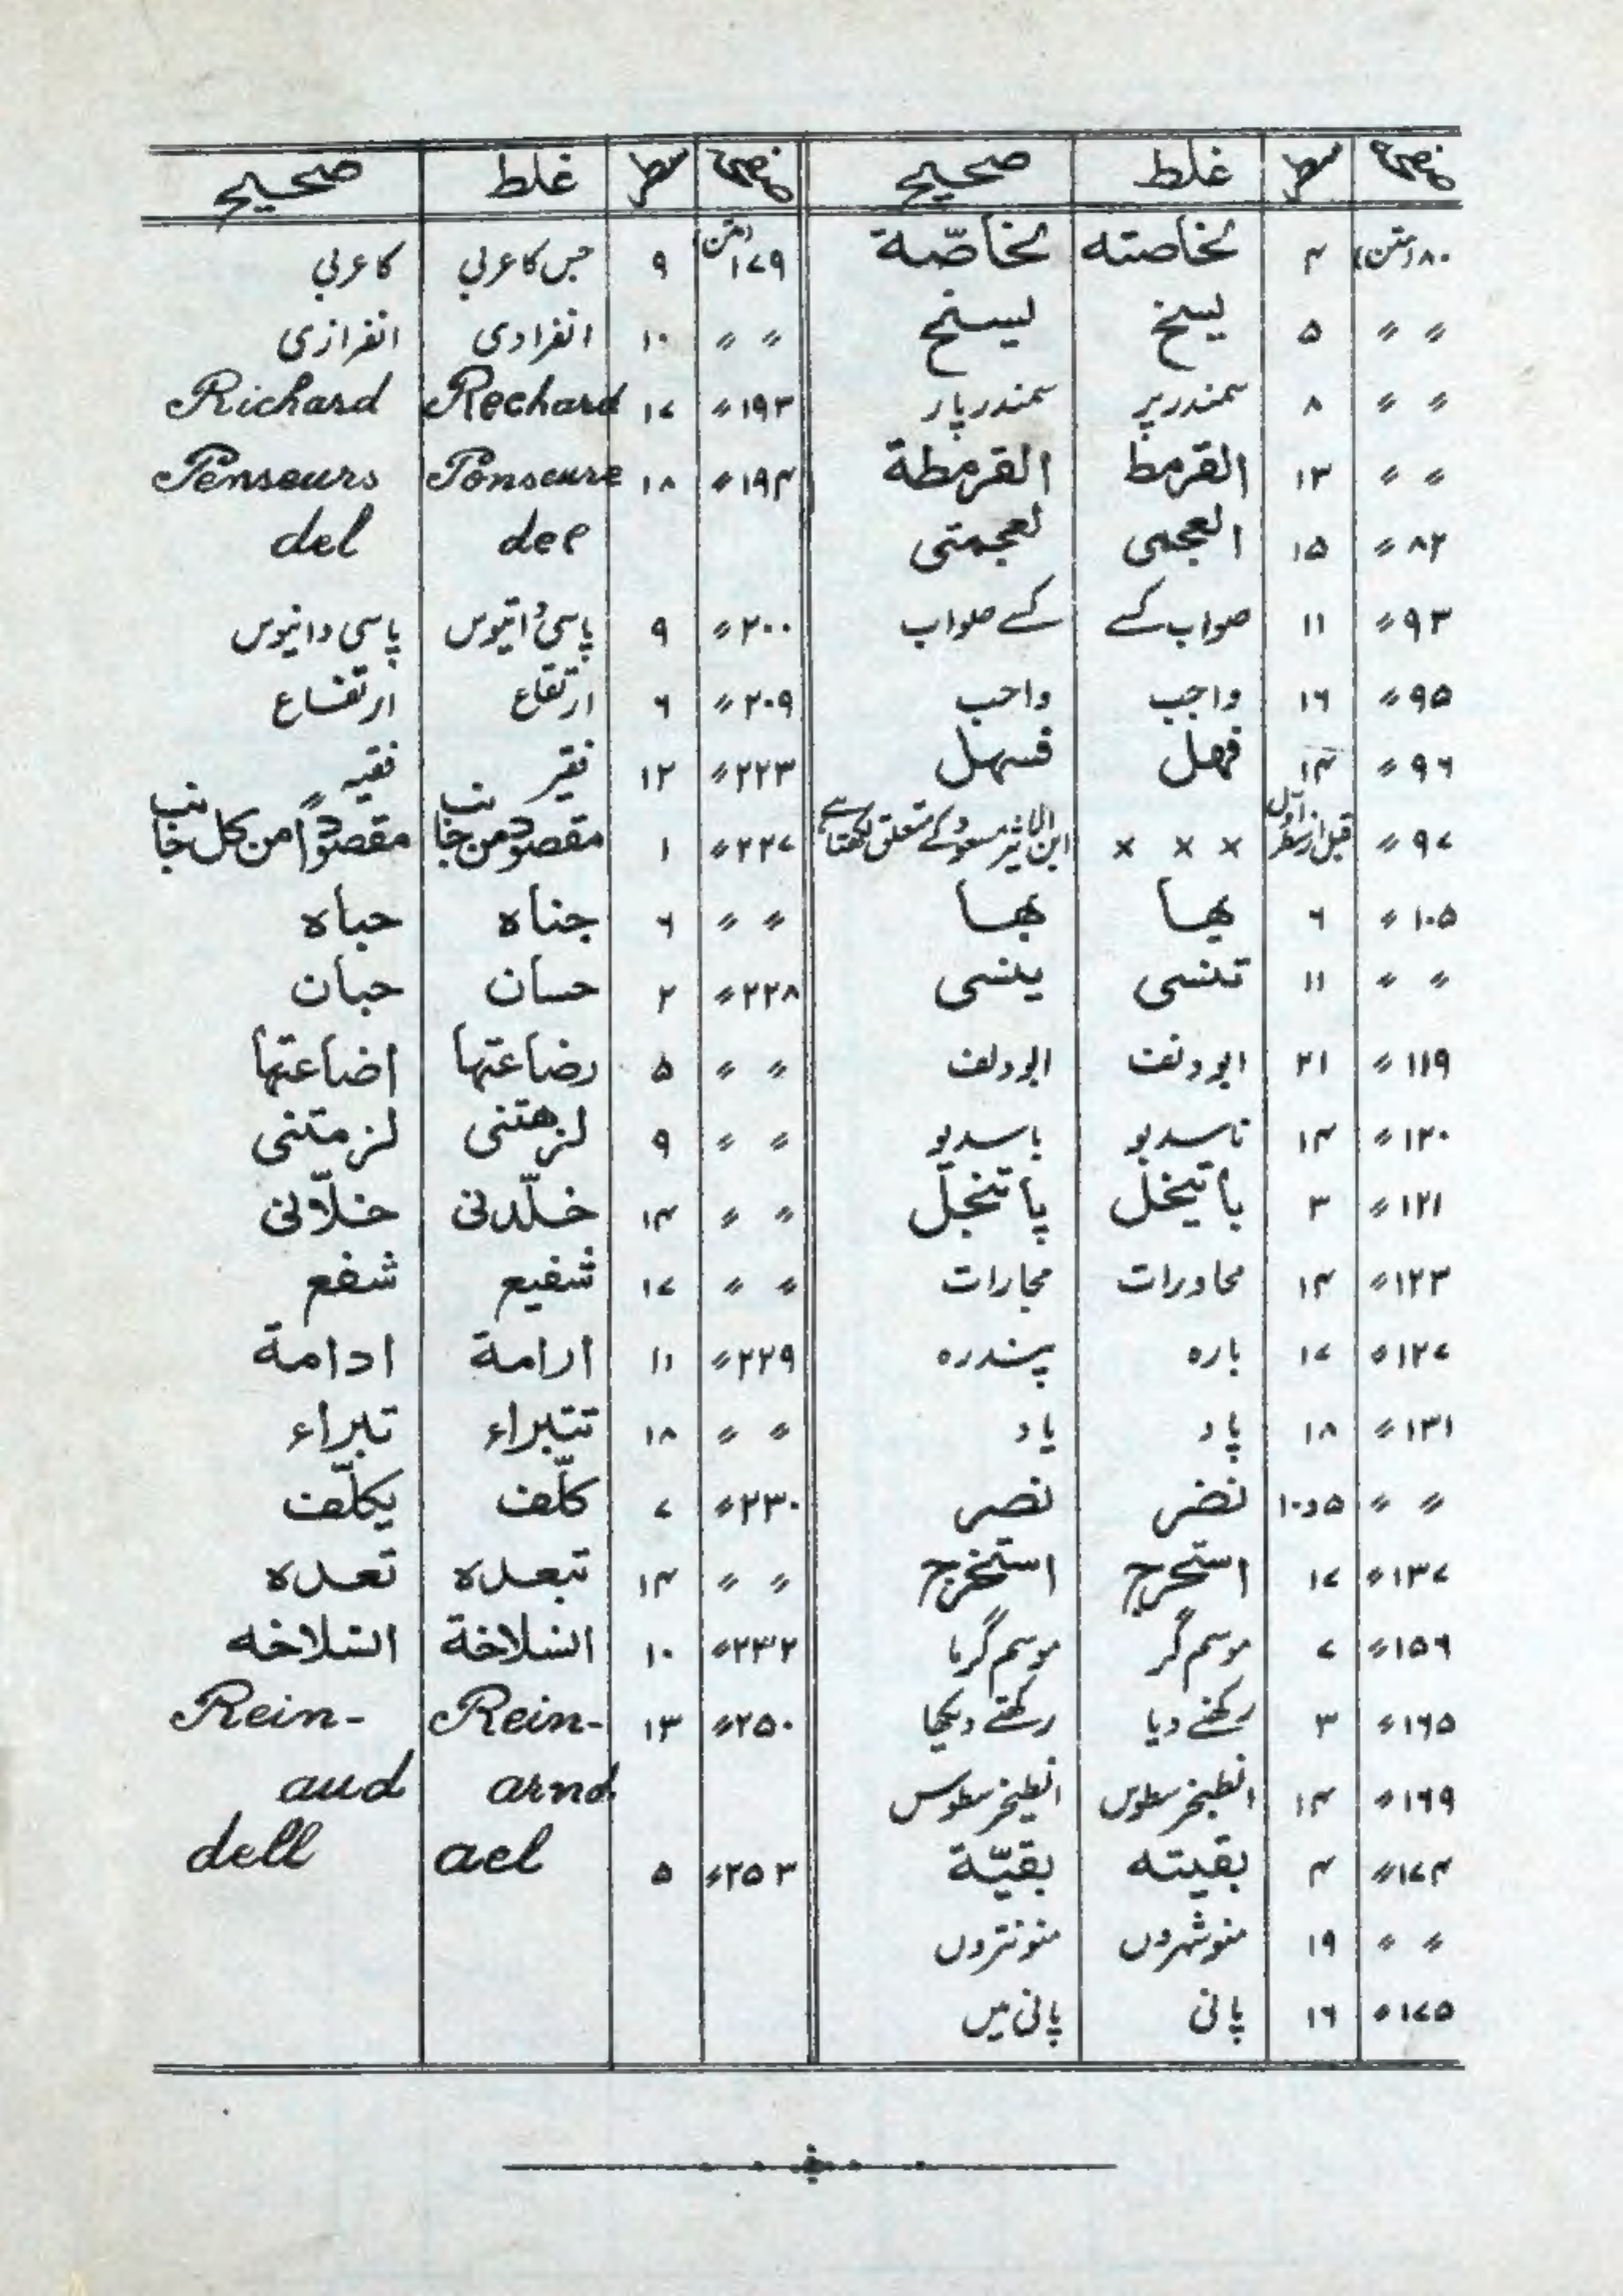 صفحہ سطر غلط صحیح
۸۰(متن) ۴ لخاصته لخاصّة
〃 〃 ۵ یسخ لیسنح
〃 〃 ۸ سمندر پر سمندر پار
〃 〃 ۱۳ القرمط القرمطة
۸۲ 〃 ۱۵ العجمی لعجمتی
۹۳ 〃 ۱۱ صواب کے کے صواب
۹۵ 〃 ۱۶ واجب واحب
۹۶ 〃 ۱۴ فهل فسهل
۹۷ 〃 قبل از سطر اول × × × ابن الاثیر مسعود کے متعلق لکھتا ہے
۱۰۵ 〃 ۶ یها بها
〃 〃 ۱۱ تنسی ینسی
۱۱۹ 〃 ۲۱ ابو دنف ابو دلف
۱۲۰ 〃 ۱۴ ناسدیو باسدیو
۱۲۱ 〃 ۳ باتیخل پاتنجل
۱۲۳ 〃 ۱۴ محاورات مجارات
۱۲۷ 〃 ۱۷ بارہ پندرہ
۱۳۱ 〃 ۱۸ پاد یاد
〃 〃 ۵و۱۰ نضر نصر
۱۳۷ 〃 ۱۷ استحرج استخرج
۱۵۶ 〃 ۷ موسم گر موسم گرما
۱۶۵ 〃 ۳ رکھنے دیا رکھنے دیکھا
۱۶۹ 〃 ۱۴ انطیخرسطوس
۱۷۴ 〃 ۴ بقیته بقیّة
〃 〃 ۱۹ منوشہروں منونتروں
۱۷۵ 〃 ۱۶ پانی پانی میں
صفحہ سطر غلط صحیح
۱۷۹(متن) ۹ جس کا عربی کا عربی
〃 〃 ۱۰ انفرادی انفرازی
۱۹۳ 〃 ۱۷ Rechard Richard
۱۹۴ 〃 ۱۸ Ponseure Penseurs
dee del
۲۰۰ 〃 ۹ پاسیُ اتیوس پاسی دانیوس
۲۰۹ 〃 ۶ ارتقاع ارتفاع
۲۲۳ 〃 ۱۲ فقیر فقیہ
۲۲۷ 〃 ۱ مقصودٌ من جانب مقصودًا من کل جانب
〃 〃 ۶ جناه حباه
۲۲۸ 〃 ۲ حسان حبان
〃 〃 ۵ رضاعتها اضاعتها
〃 〃 ۹ لزهتنی لزمتنی
〃 〃 ۱۴ خلّدنی خلّانی
〃 〃 ۱۷ شفیع شفع
۲۲۹ 〃 ۱۱ ارامة ادامة
〃 〃 ۱۸ تتبراء تبراء
۲۳۰ 〃 ۷ کلّف یکلّف
〃 〃 ۱۴ تبعده تعده
۲۳۲ 〃 ۱۰ الشلاخة الشلاخه
۲۵۰ 〃 ۱۳ Rein- Rein-
arnd aud
۲۵۳ 〃 ۵ ael dell